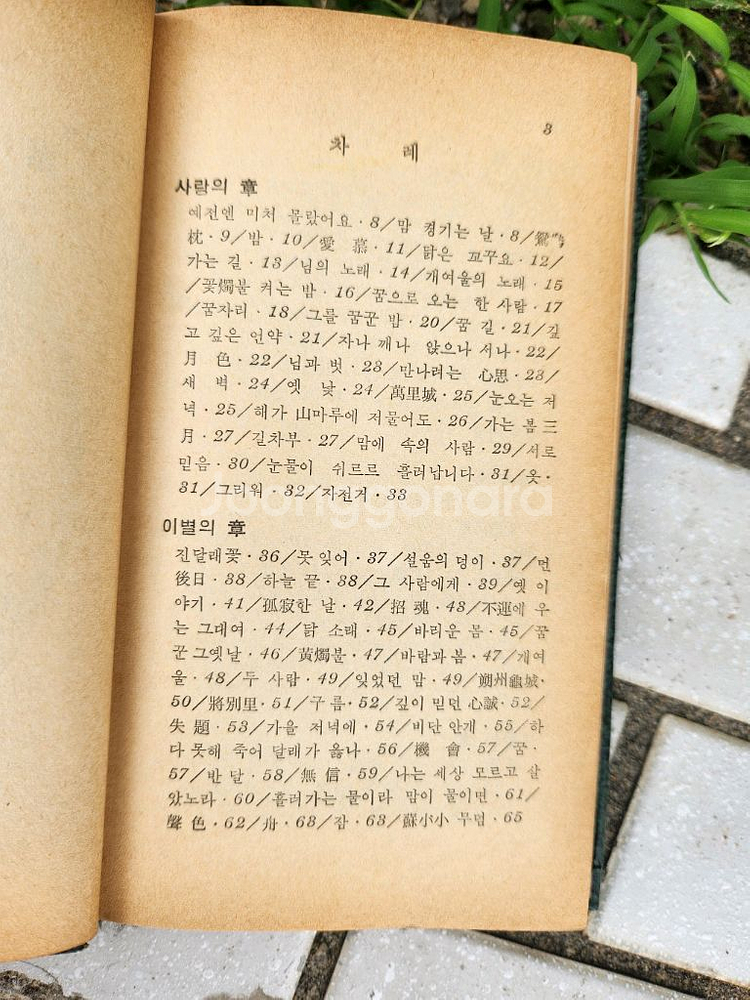 3
차 례
사랑의 章
예전엔 미처 몰랐어요·8/맘 켱기는 날·8/鴛鴦
枕·9/밤·10/愛 慕·11/닭은 꼬꾸요·12/
가는 길·13/님의 노래·14/개여울의 노래·15
/꽃燭불 켜는 밤·16/꿈으로 오는 한 사람·17
/꿈자리·18/그를 꿈꾼 밤·20/꿈 길·21/깊
고 깊은 언약·21/자나 깨나 앉으나 서나·22/
月 色·22/님과 벗·23/만나려는 心思·23/
새 벽·24/옛 낯·24/萬里城·25/눈오는 저
녁·25/해가 山마루에 저물어도·26/가는 봄 三
月·27/길차부·27/맘에 속의 사람·29/서로
믿음·30/눈물이 쉬르르 흘러납니다·31/옷·
31/그리워·32/자전거·33
joonggonara
이별의 章
진달래꽃·36/못 잊어·37/설움의 덩이·37/먼
後日·38/하늘 끝·38/그 사람에게·39/옛 이
야기·41/孤寂한 날·42/招 魂·43/不運에 우
는 그대여·44/닭 소래·45/바리운 몸·45/꿈
꾼 그옛날·46/黃燭불·47/바람과 봄·47/개여
울·48/두 사람·49/잊었던 맘·49/朔州龜城·
50/將別里·51/구름·52/깊이 믿던 心誠·52/
失 題·53/가을 저녁에·54/비단 안개·55/하
다 못해 죽어 달래가 옳나·56/機 會·57/꿈·
57/반 달·58/無 信·59/나는 세상 모르고 살
았노라·60/흘러가는 물이라 맘이 물이면·61/
聲 色·62/舟·63/잠·63/蘇小小 무덤·65